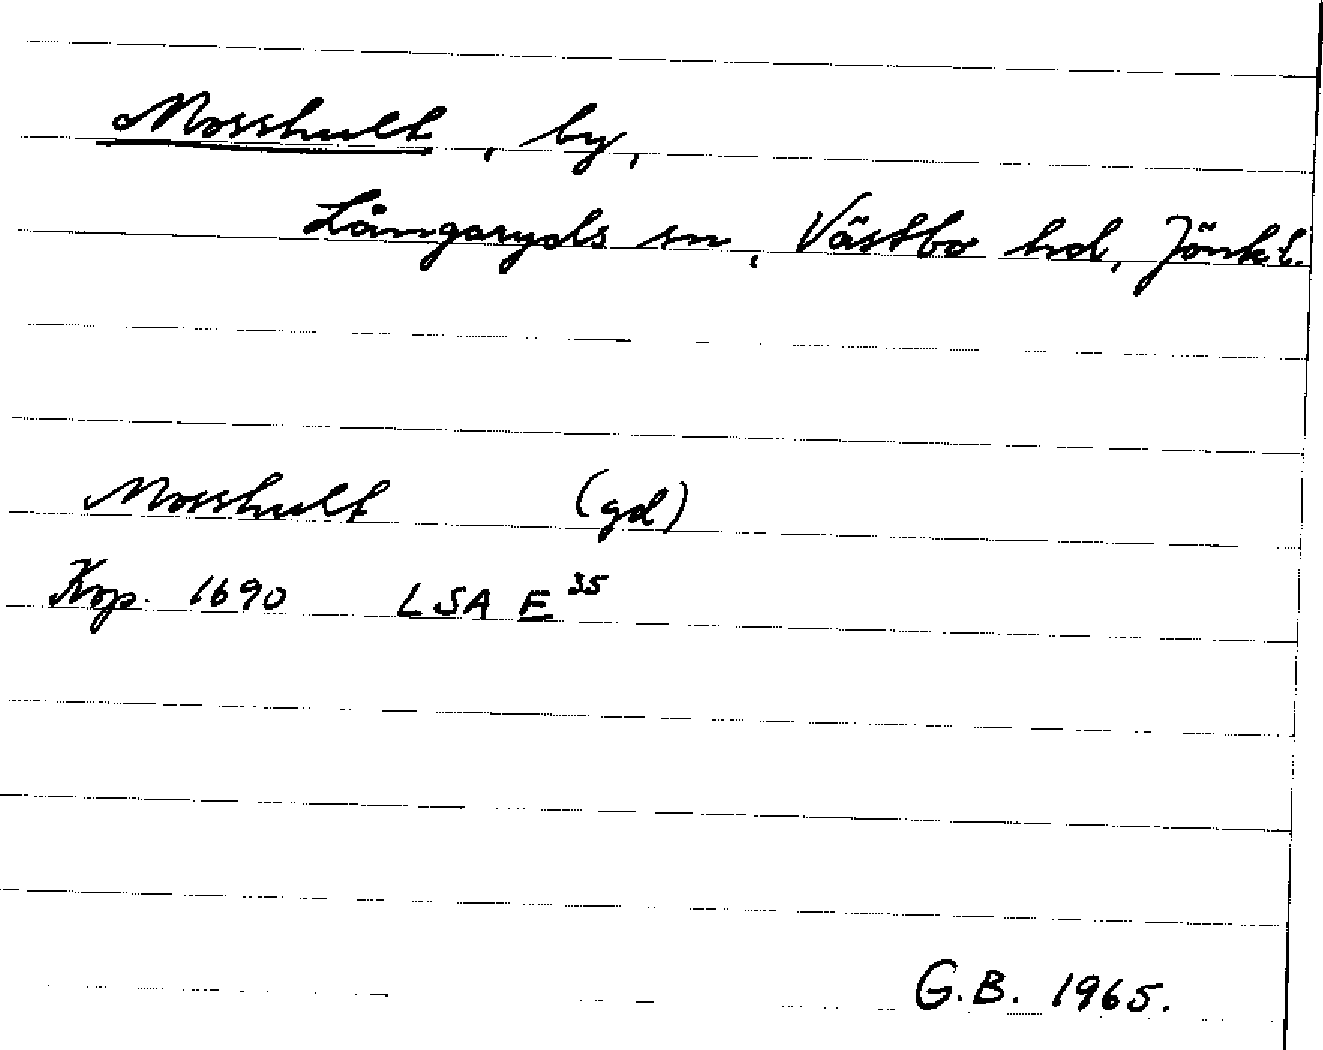 Mosshult, by,
Långaryds sn, Västbo hd, Jönk.l.
Mosshult (gd)
Kop. 1690 LSA E 35
G.B. 1965.